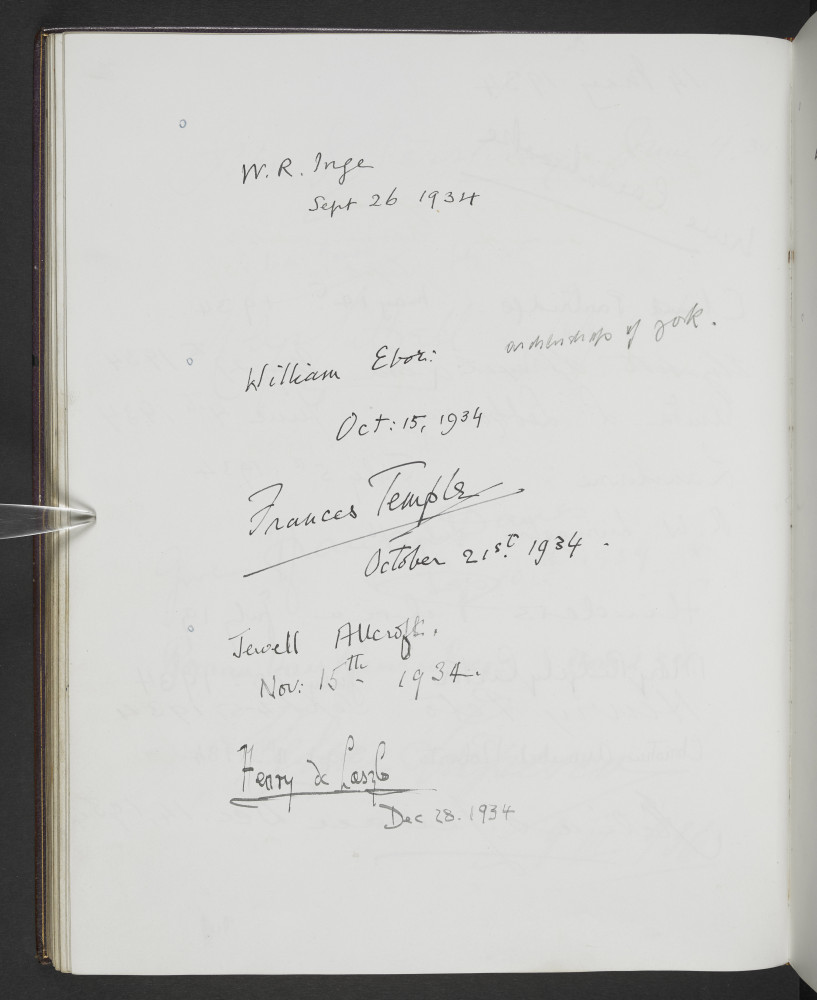 W. R. Inge
Sept 26 1934
William Ebor:
archbishop of york.
Oct: 15, 1934
Frances Temple
October 21st. 1934.
Jewell Allcroft.
Nov: 15th 1934.
Henry de Laszlo
Dec 28. 1934